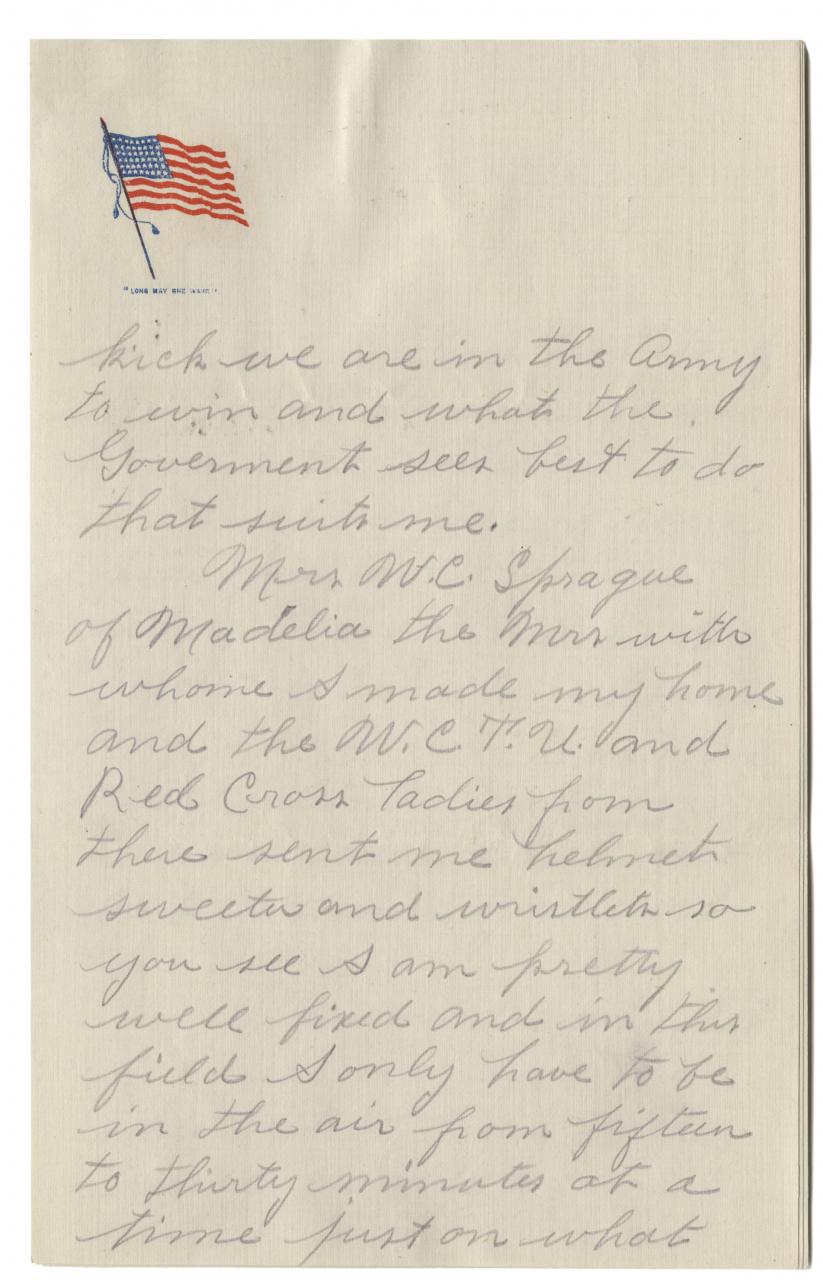 "LONG MAY SHE WAVE"
kick we are in the Army
to win and what the
Goverment sees best to do
that suits me.
Mrs W.C. Sprague
of Madelia the Mrs with
whome I made my home
and the W.C.T.U. and
Red Cross ladies from
there sent me helmets
sweeter and wristlets so
you see I am pretty
well fixed and in this
field I only have to be
in the air from fifteen
to thirty minutes at a
time just on what